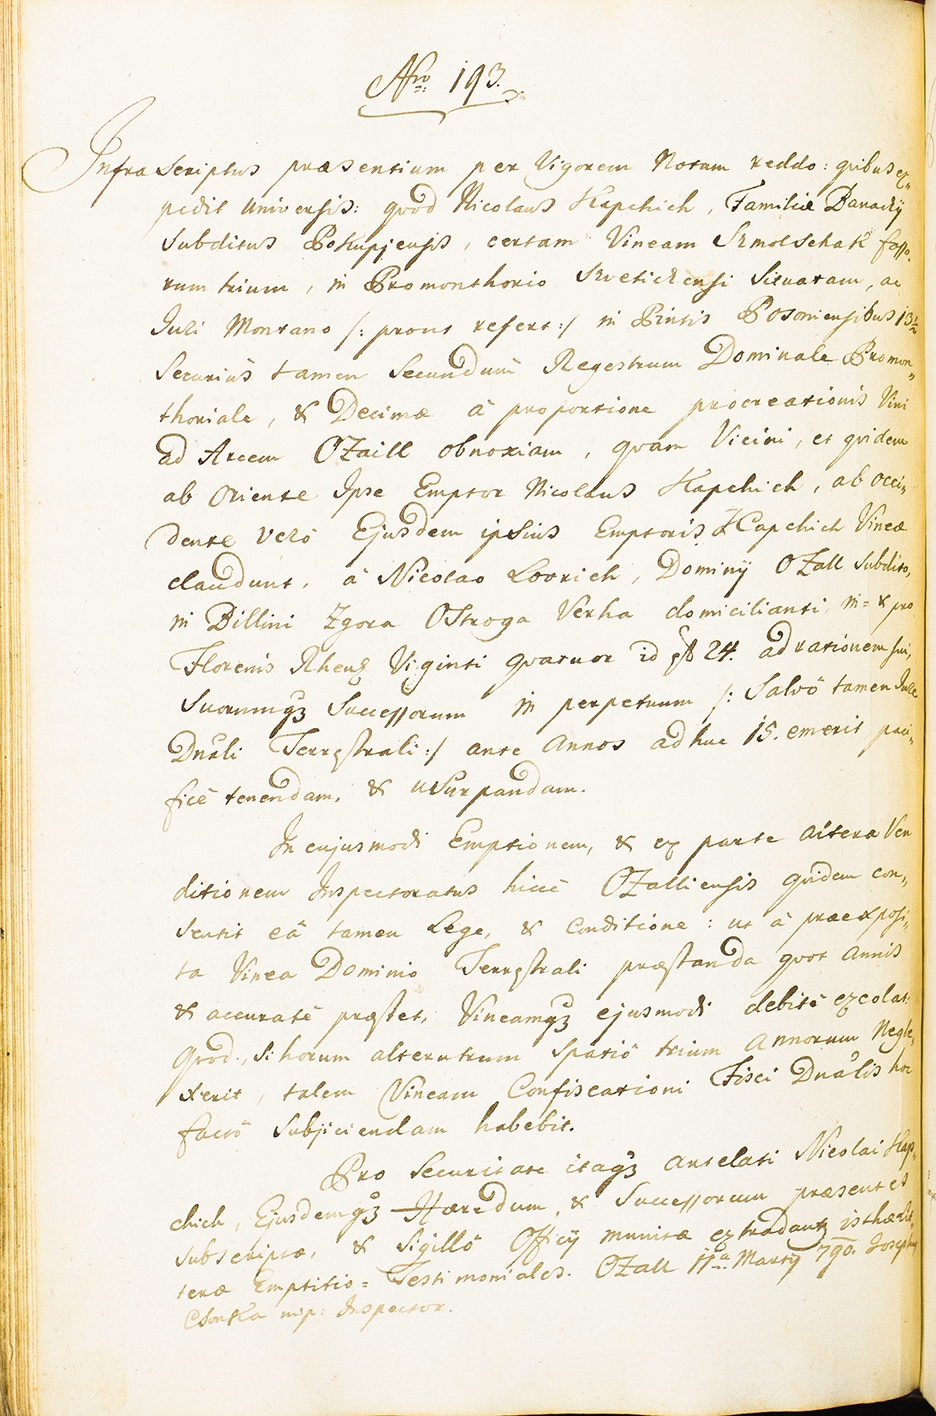 Nro 193.
Infra Scriptus præsentium per Vigorem Notum reddo: quibus ex„
pedit Universis: quod Nicolaus Hapchich, Familiæ Banachÿ
Subditus Pokupjensis, certam Vineam Szmolschak fosso„
rum trium, in Promonthorio Szvetichensi Situatam, ac
Juri Montano /: prout refert:/ in Pintis Posoniensibus 13½
Securius tamen Secundum Regestrum Dominale Promon„
thoriale, & Decimæ à proportione procreationis Vini
ad Arcem OZaill obnoxiam, quam Vicini, et quidem
ab Oriente Ipse Emptor Nicolaus Hapchich, ab occi„
dente Verò Ejusdem ipsius Emptoris Hapchich Vineæ
claudunt, à Nicolao Lovrich, Dominÿ OZall Subdito,
in Billini Zgora Ostroga Verha domicilianti in= & pro
Florenis Rhens Viginti quatuor id est 24. ad rationem sui,
Suorumq3 Successorum in perpetuum /: Salvô tamen Jure
Dnali Terrestrali:/ ante Annos adhuc 15. emerit paci„
ficè tenendam, & usurpandam.
In cujusmodi Emptionem, & ex parte altera Ven
ditionem Inspectoratus hicce OZalliensis quidem con„
sentit eâ tamen Lege, & Conditione: ut à præexposi„
ta Vinea Dominio Terrestrali præstanda quot annis
& accuratè præstet, Vineamq3 ejusmodi debitè excolat:
Quod, si horum alterutrum Spatiô trium Annorum Negle„
xerit, talem Vineam Confiscationi Fisci Dnalis hoc
factô Subjiciendam habebit.
Pro Securitate itaq3 antelati Nicolai Hap„
chich, Ejusdemq3 Hæredum, & Successorum præsentes
Subscriptæ, & Sigillô Officÿ munitæ extradantur isthæ Lit„
teræ Emptitio= Testimoniales. OZall 11a Martÿ 790. Josephus
Csonka mp: Inspector.